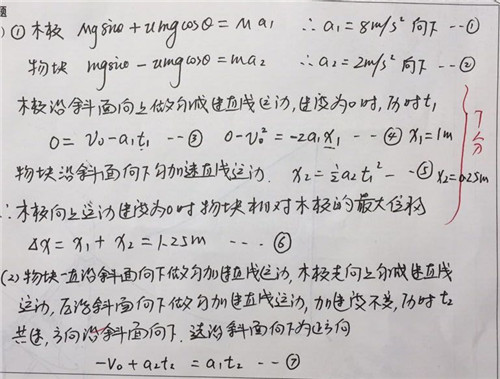 题
) ① 木板 Mgsinθ + umgcosθ = Ma₁ ∴ a₁ = 8m/s² 向下 --①
物块 mgsinθ - umgcosθ = ma₂ ∴ a₂ = 2m/s² 向下 --②
木板沿斜面向上做匀减速直线运动,速度为0时,历时t₁
0 = V₀ - a₁t₁ --③ 0 - V₀² = -2a₁x₁ -- ④ x₁ = 1m
物块沿斜面向下匀加速直线运动. x₂ = ½a₂t₁² -- ⑤ x₂=0.25m
7分
∴ 木板向上运动速度为0时物块相对木板的最大位移
Δx = x₁ + x₂ = 1.25m --- ⑥
(2) 物块一直沿斜面向下做匀加速直线运动,木板先向上匀减速直线
运动,后沿斜面向下做匀加速直线运动,加速度不变,历时t₂
共速,方向沿斜面向下. 选沿斜面向下为正方向
-V₀ + a₂t₂ = a₁t₂ --⑦